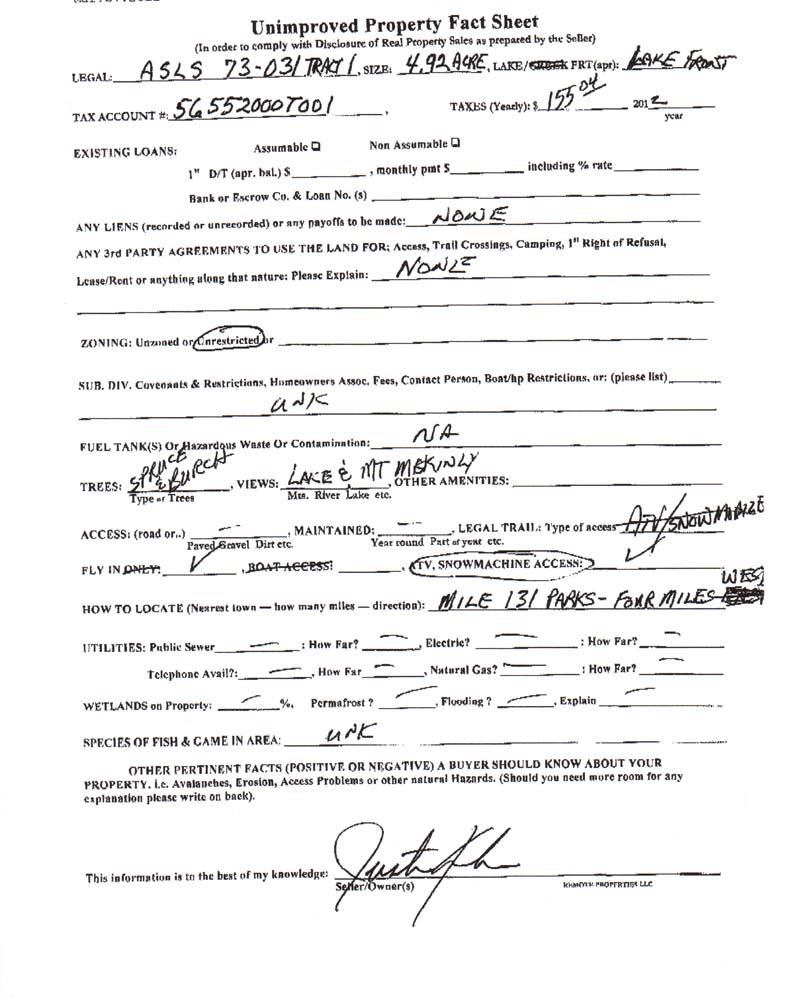 Unimproved Property Fact Sheet
(In order to comply with Disclosure of Real Property Sales as prepared by the Seller)
LEGAL: ASLS 73-031 TRACT 1, SIZE: 4.92 ACRE, LAKE/CREEK FRT(apr): LAKE FRONT
TAX ACCOUNT #: 56552000T001, TAXES (Yearly): $ 155 04 2012
year
EXISTING LOANS: Assumable ❑ Non Assumable ❑
1" D/T (apr. bal.) $ , monthly pmt $ including % rate
Bank or Escrow Co. & Loan No. (s)
ANY LIENS (recorded or unrecorded) or any payoffs to be made: NONE
ANY 3rd PARTY AGREEMENTS TO USE THE LAND FOR; Access, Trail Crossings, Camping, 1st Right of Refusal,
Lease/Rent or anything along that nature: Please Explain: NONE
ZONING: Unzoned or Unrestricted or
SUB. DIV. Covenants & Restrictions, Homeowners Assoc. Fees, Contact Person, Boat/hp Restrictions, or: (please list)
UNK
FUEL TANK(S) Or Hazardous Waste Or Contamination: NA
TREES: SPRUCE & BURCH, VIEWS: LAKE & MT MEKINLY, OTHER AMENITIES:
Type or Trees Mts. River Lake etc.
ACCESS: (road or..) — , MAINTAINED: — , LEGAL TRAIL: Type of access ATV/SNOWMAHZE
Paved Gravel Dirt etc. Year round Part of year etc.
FLY IN ONLY: ✓ , BOAT ACCESS: , ATV, SNOWMACHINE ACCESS: ✓
HOW TO LOCATE (Nearest town — how many miles — direction): MILE 131 PARKS - FOUR MILES WEST
UTILITIES: Public Sewer — : How Far? — , Electric? — : How Far? —
Telephone Avail?: — , How Far — , Natural Gas? — : How Far? —
WETLANDS on Property: — %, Permafrost ? — , Flooding ? — , Explain —
SPECIES OF FISH & GAME IN AREA: UNK
OTHER PERTINENT FACTS (POSITIVE OR NEGATIVE) A BUYER SHOULD KNOW ABOUT YOUR
PROPERTY. i.e. Avalanches, Erosion, Access Problems or other natural Hazards. (Should you need more room for any
explanation please write on back).
This information is to the best of my knowledge:
Seller/Owner(s) PROPERTIES LLC